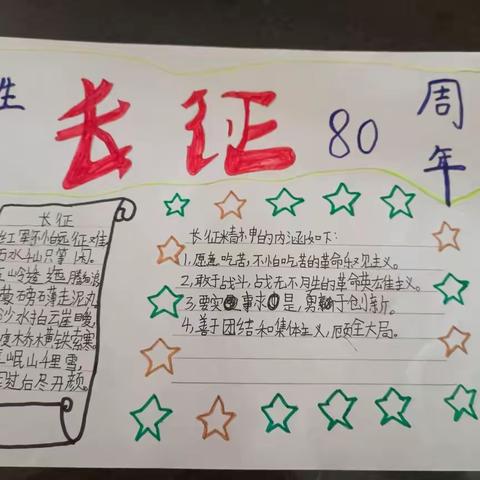 性 长征 80 周年
长征
红军不怕远征难
水千山只等闲。
岭逶迤腾细浪
磅礴走泥丸
沙水拍云崖暖,
度桥横铁索寒。
岷山千里雪,
过后尽开颜。
长征精神的内涵如下:
1,愿意吃苦,不怕吃苦的革命乐观主义。
2,敢于战斗,战无不胜的革命英雄主义。
3,要实事求是,勇于创新。
4,善于团结和集体主义,顾全大局。